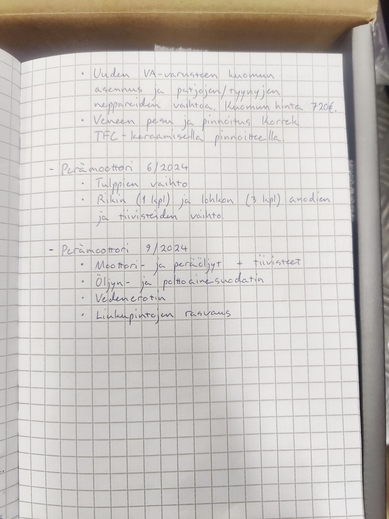 · Uuden VA-varusteen kuomun
asennus ja patjojen/tyynyjen
neppareiden vaihtoa. Kuomun hinta 720€.
· Veneen pesu ja pinnoitus Korrek
TFC-keraamisella pinnoitteella.
- Perämoottori 6/2024
· Tulppien vaihto
· Rikin (1 kpl) ja lohkon (3 kpl) anodien
ja tiivisteiden vaihto.
- Perämoottori 9/2024
· Moottori- ja peräöljyt + tiivisteet
· Öljyn- ja polttoainesuodatin
· Vedenerotin
· Liukupintojen rasvaus